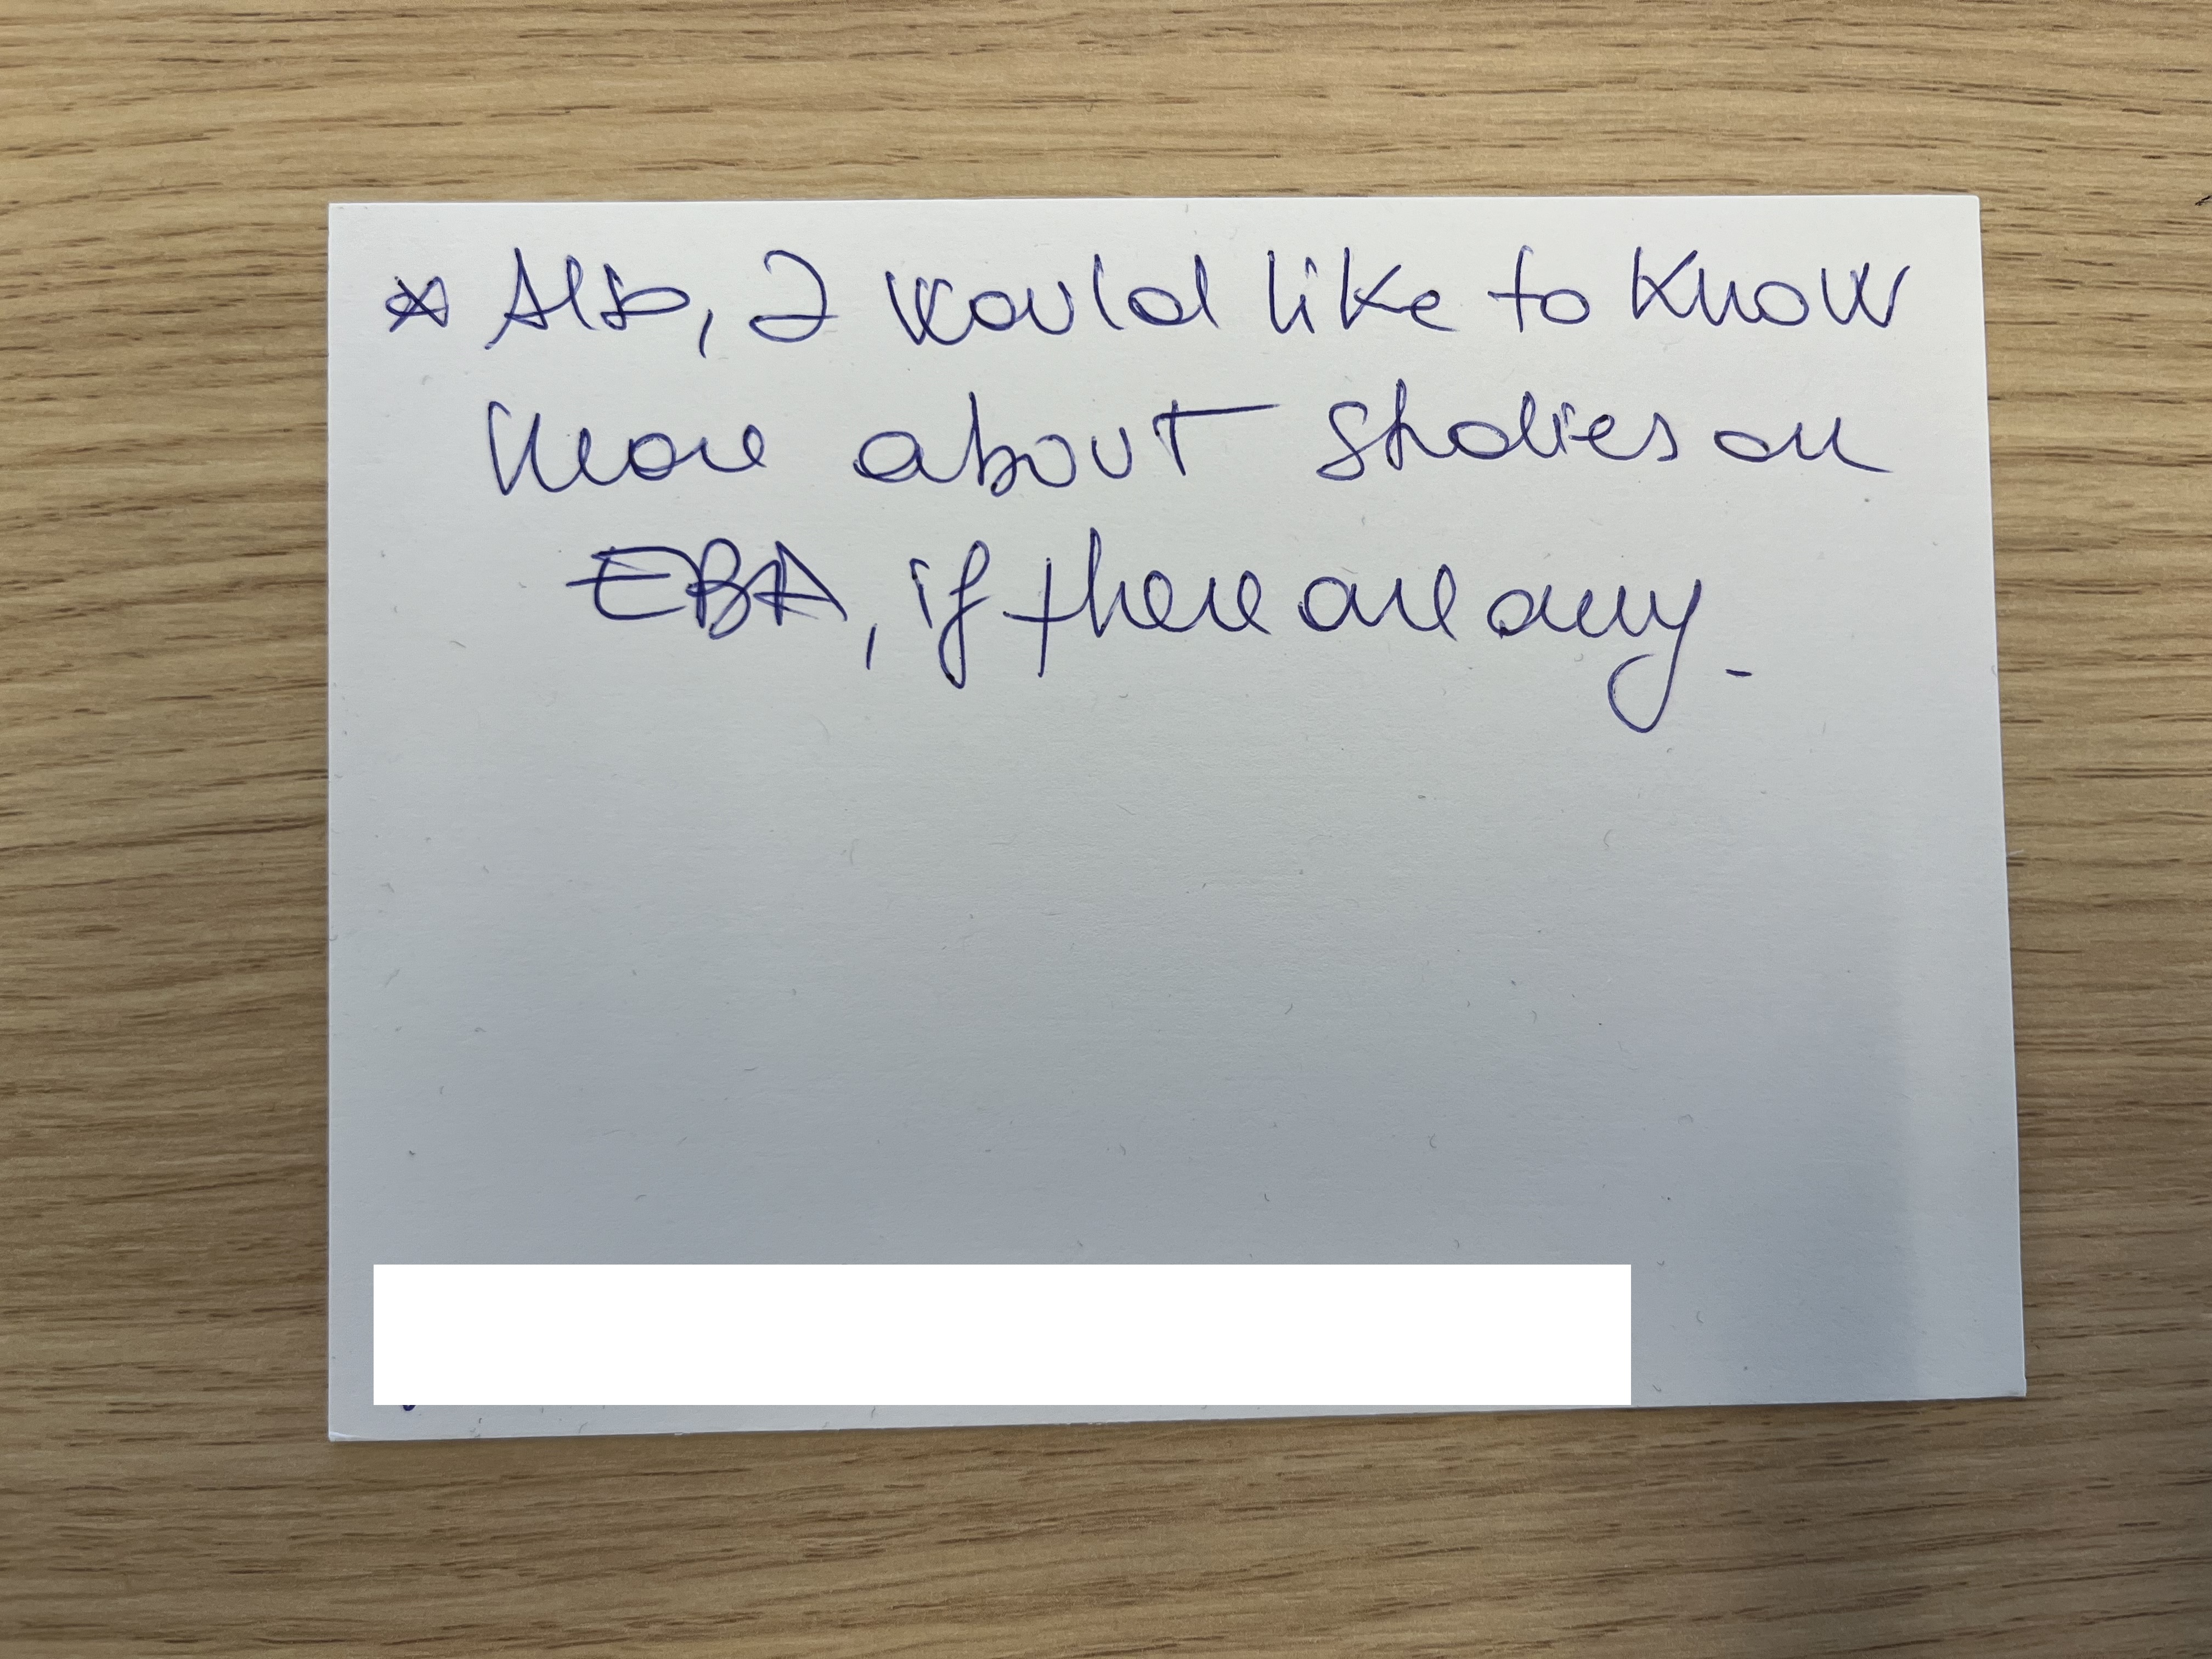 * Also, I would like to know
more about studies on
EBA, if there are any.